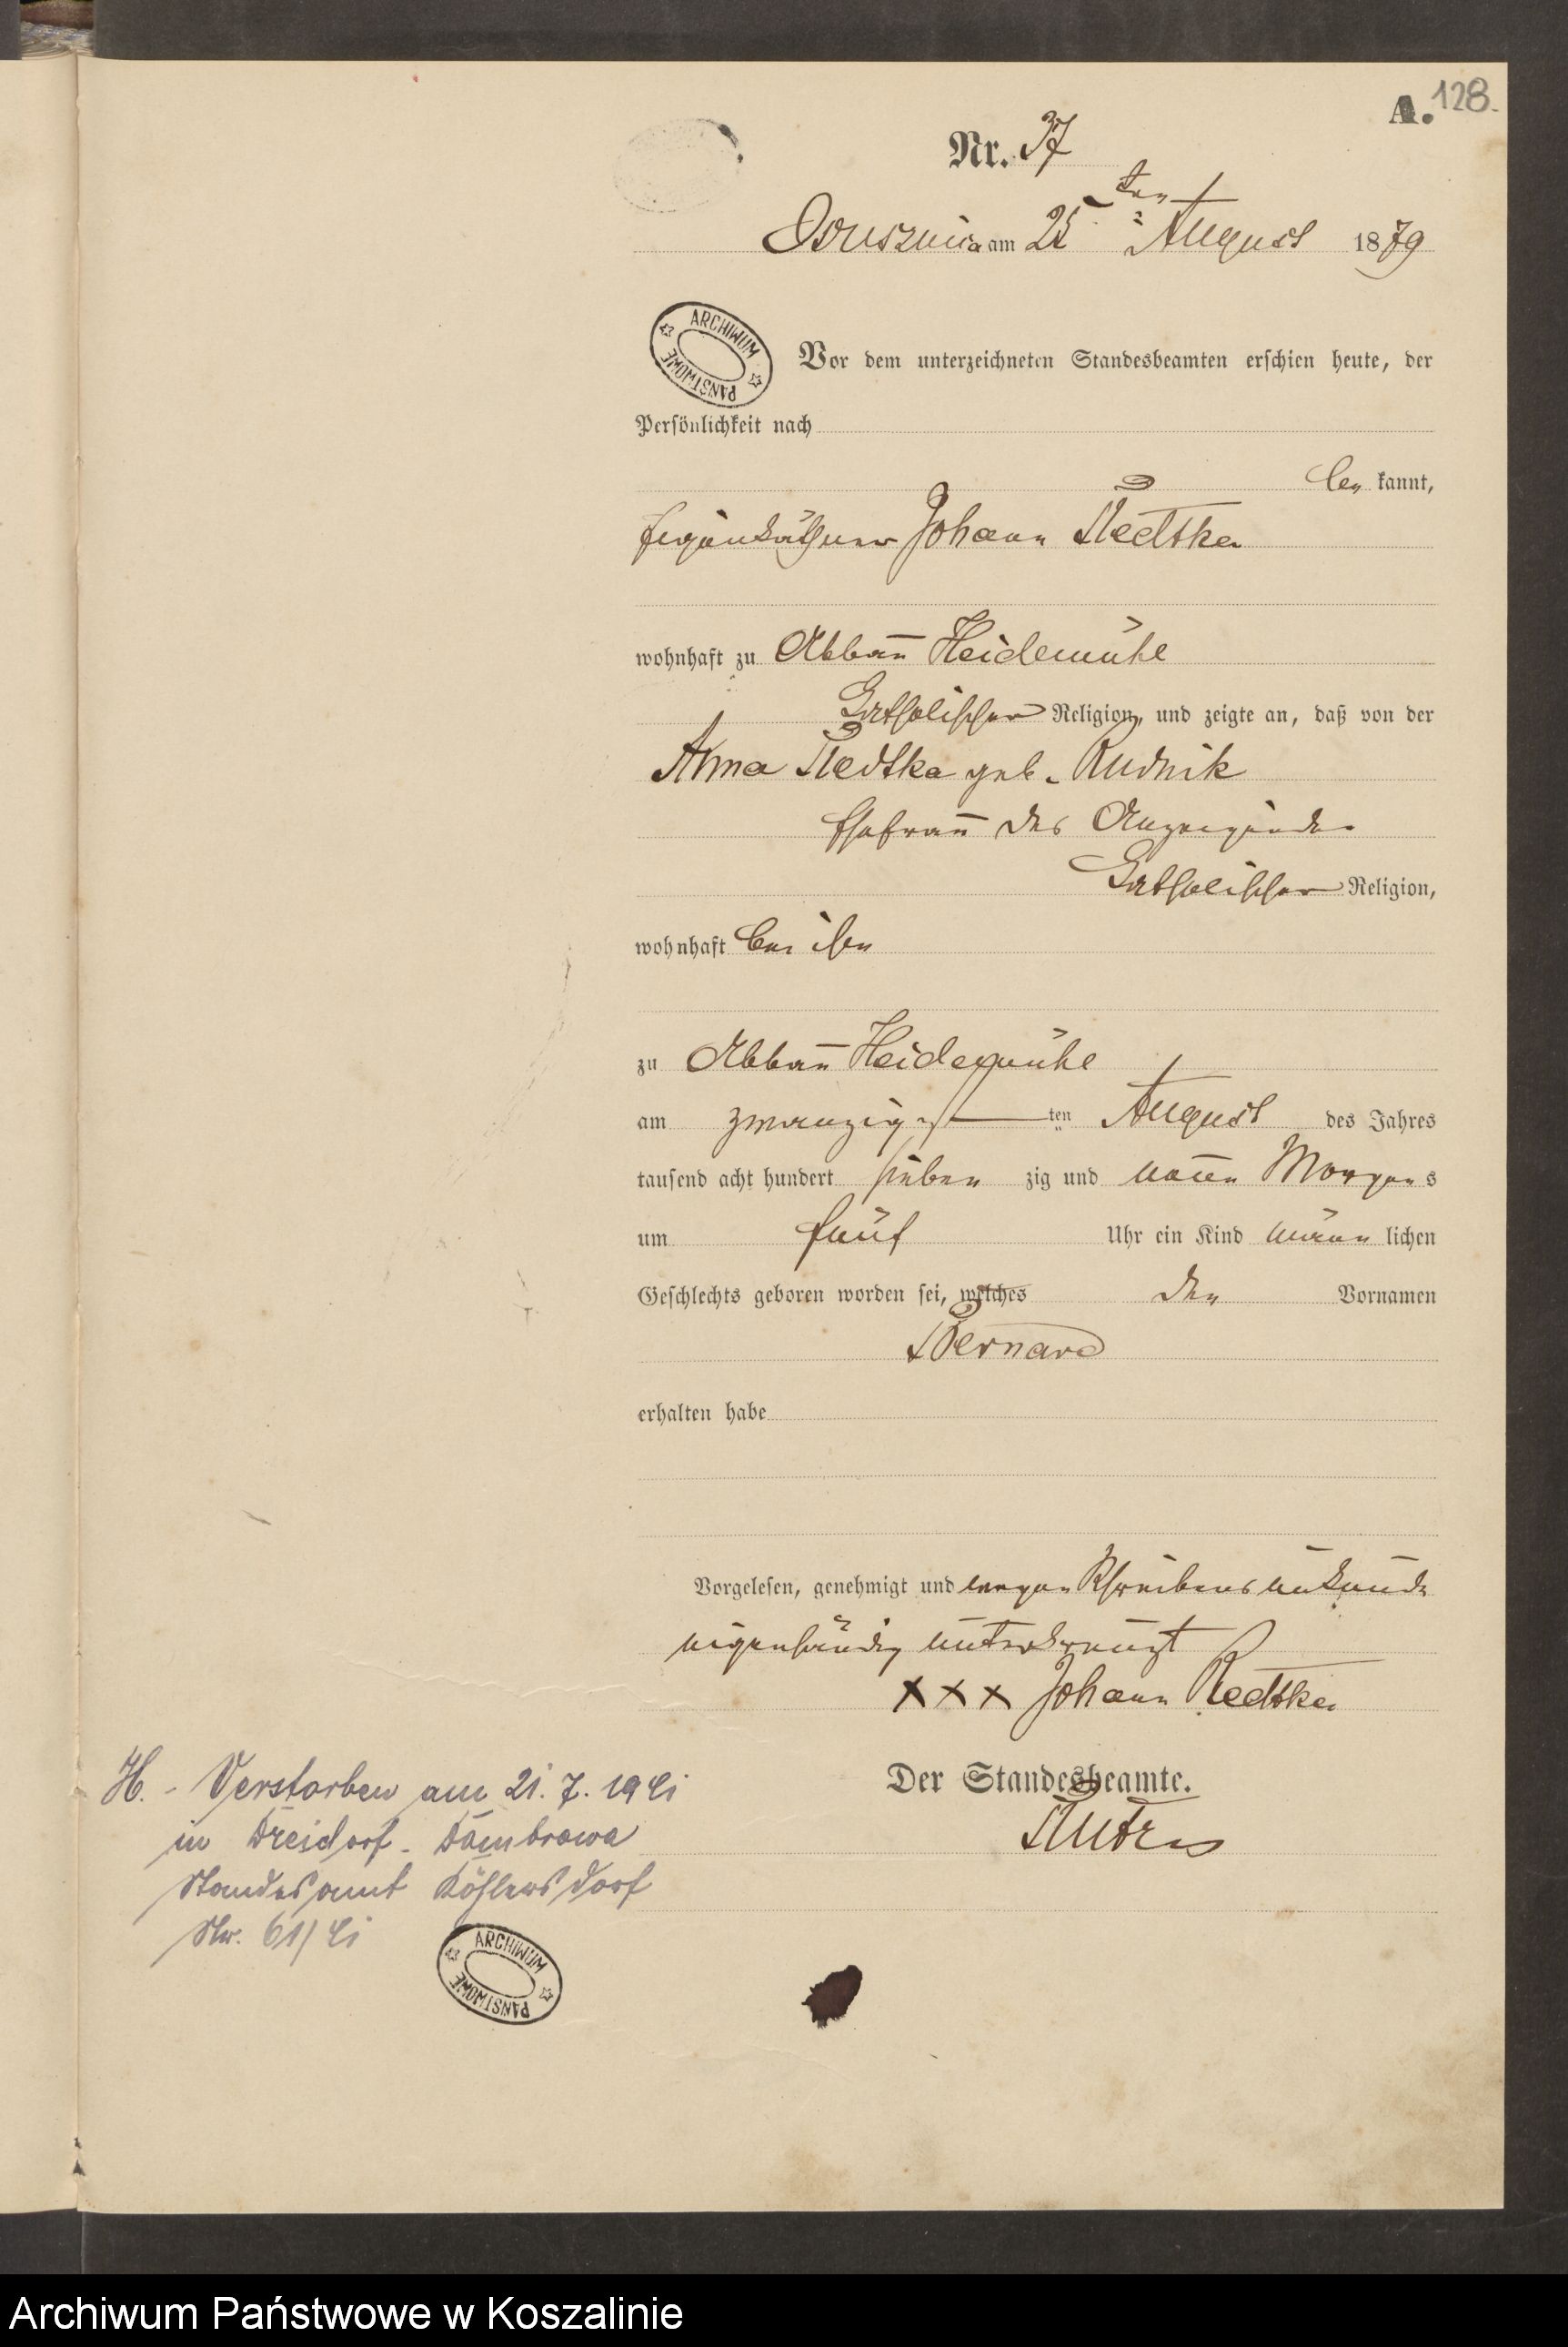 A. 128.
Nr. 37
Osuszniza am 25ten August 1879
ARCHIWUM PAŃSTWOWE
Vor dem unterzeichneten Standesbeamten erschien heute, der
Persönlichkeit nach
be kannt,
Eigenkäthner Johann Redtka
wohnhaft zu Abbau Heidemühl
Katholischer Religion, und zeigte an, daß von der
Anna Redtka geb. Rudnik
Ehefrau des Anzeigenden
Katholischer Religion,
wohnhaft bei ihm
zu Abbau Heidemühl
am zwanzigsten August des Jahres
tausend acht hundert sieben zig und neun Morgens
um fünf Uhr ein Kind männ lichen
Geschlechts geboren worden sei, welches den Vornamen
Bernard
erhalten habe
Vorgelesen, genehmigt und wegen Schreibensunkunde
eigenhändig unterkreuzt
XXX Johann Redtka
Der Standesbeamte.
H. - Verstorben am 21. 7. 1941
in Dreidorf - Dambrowa
Standesamt Köhlersdorf
Nr. 61/41
ARCHIWUM PAŃSTWOWE
Archiwum Państwowe w Koszalinie